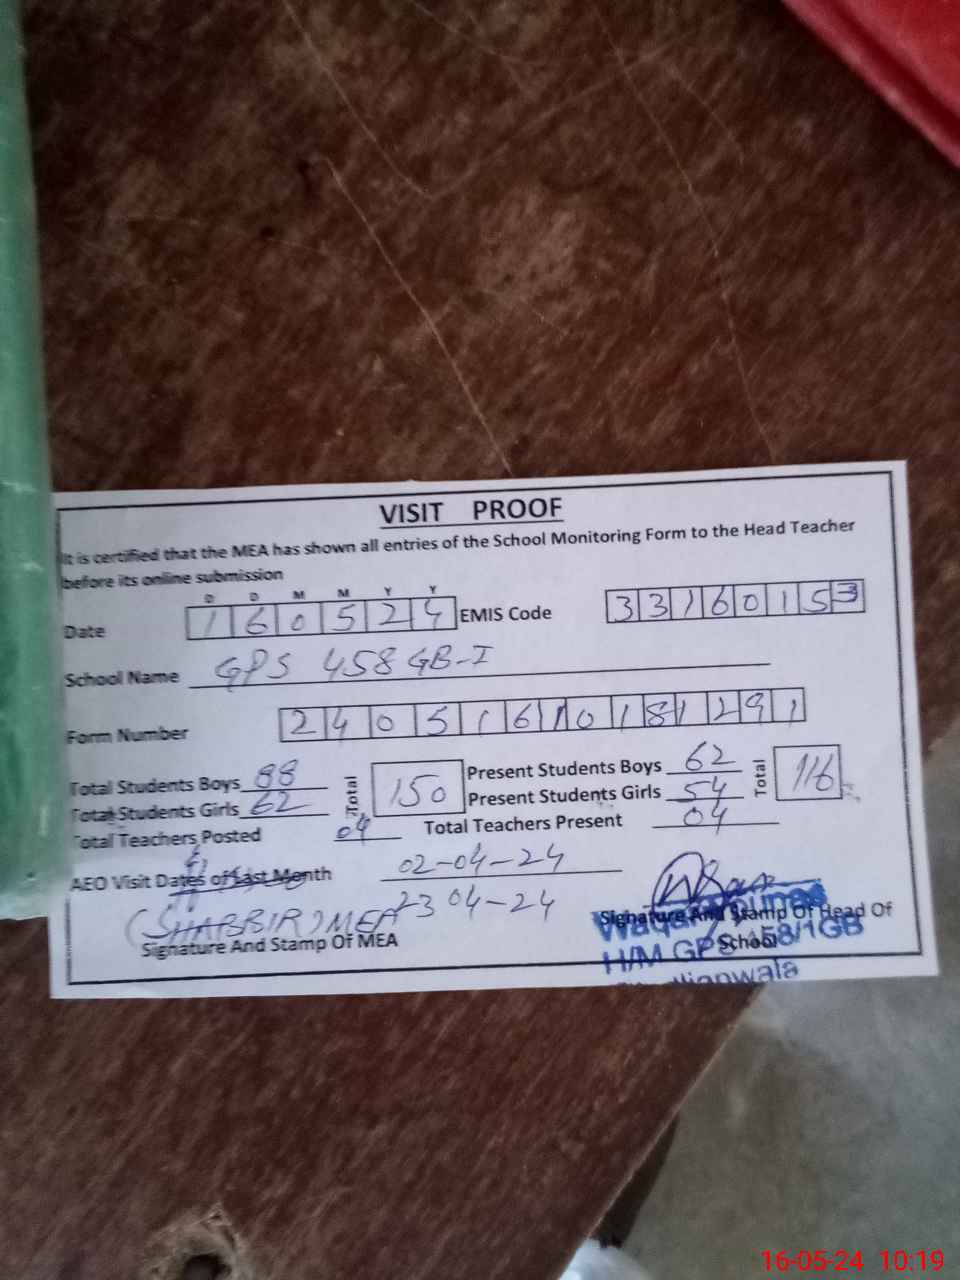 VISIT PROOF
It is certified that the MEA has shown all entries of the School Monitoring Form to the Head Teacher
before its online submission
D D M M Y Y
Date 1 6 0 5 2 4 EMIS Code 3 3 1 6 0 1 5 3
School Name GPS 458 GB-I
Form Number 2 4 0 5 1 6 1 0 1 8 1 2 9 1
Total Students Boys 88 Total 150 Present Students Boys 62 Total 116
Total Students Girls 62 Present Students Girls 54
Total Teachers Posted 04 Total Teachers Present 04
AEO Visit Dates of Last Month 02-04-24
23 04-24
(SHABBIR) MEA
Signature And Stamp Of MEA
Signature And Stamp Of Head Of
School
H/M GPS 458/1GB